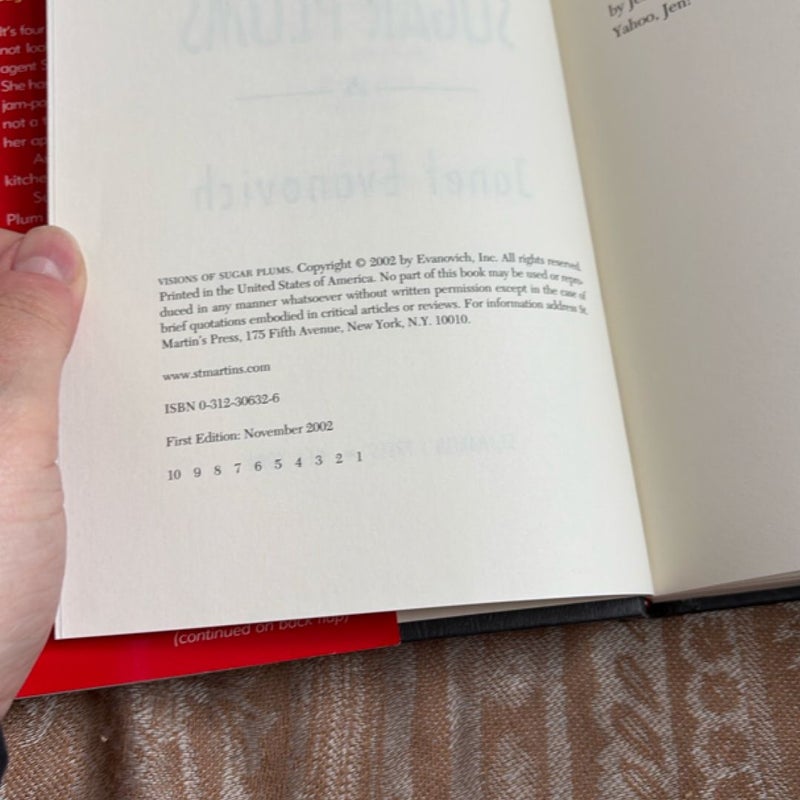 It's four
not loo
agent S
She ha
jam-pa
not a
her ap
kitche
Plum
SUGAR PLUMS
Janet Evanovich
by Je
Yahoo, Jen!
VISIONS OF SUGAR PLUMS. Copyright © 2002 by Evanovich, Inc. All rights reserved.
Printed in the United States of America. No part of this book may be used or repro-
duced in any manner whatsoever without written permission except in the case of
brief quotations embodied in critical articles or reviews. For information address St.
Martin's Press, 175 Fifth Avenue, New York, N.Y. 10010.
www.stmartins.com
ISBN 0-312-30632-6
First Edition: November 2002
10 9 8 7 6 5 4 3 2 1
(continued on back flap)